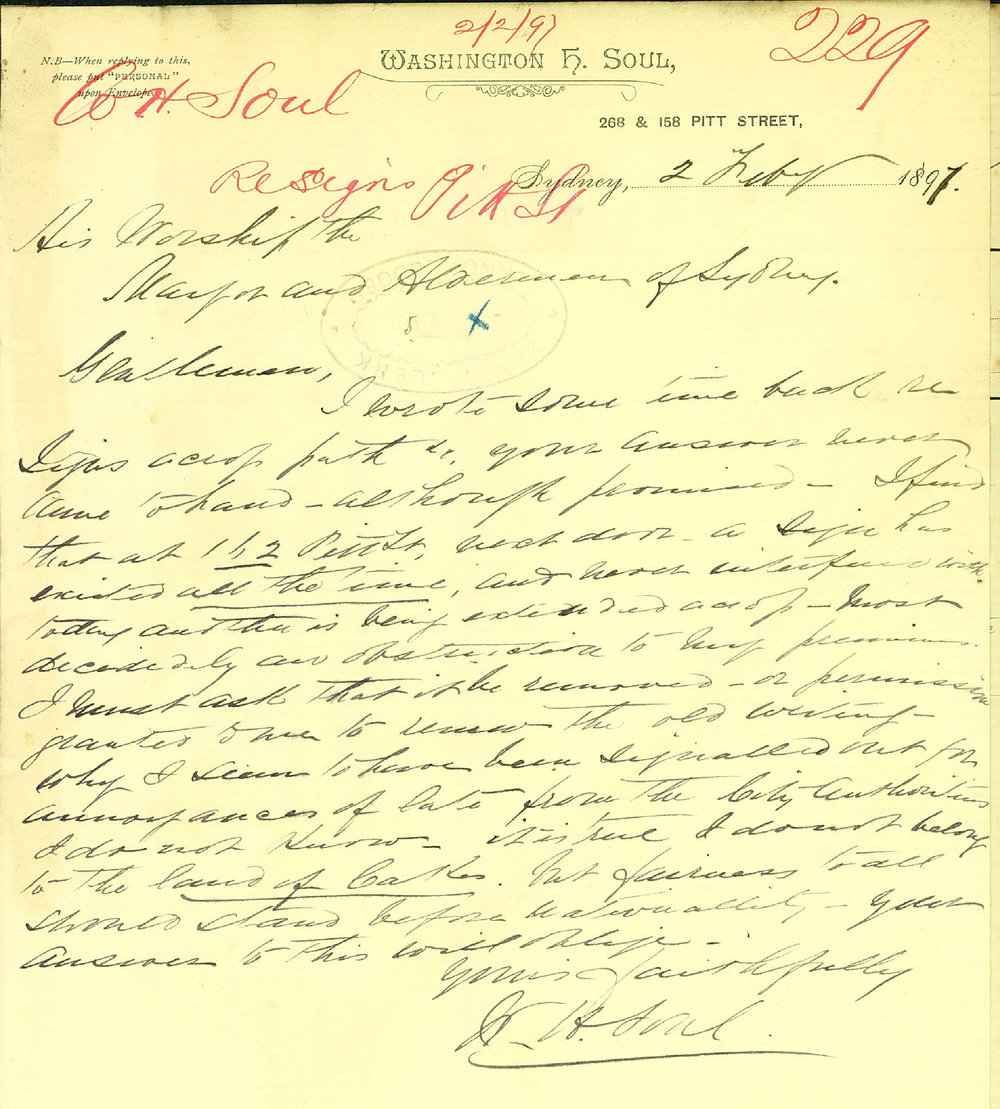 2/2/97
229
N.B—When replying to this,
please put "PERSONAL"
upon Envelope
WASHINGTON H. SOUL,
W H. Soul
268 & 158 PITT STREET,
Re signs Pitt St
Sydney, 2 Feby 1897.
His Worship the
Mayor and Aldermen of Sydney.
Gentlemen,
I wrote some time back re
Signs across path &c, your answer never
came to hand – although promised – I find
that at 162 Pitt St, next door – a sign has
existed all the time, and never interfered with.
today another is being extended across – most
decidedly an obstruction to my premises.
I must ask that it be removed – or permission
granted me to renew the old writing –
why I seem to have been signalled out for
annoyances of late from the City Authorities
I do not know – it is true I do not belong
to the land of Cakes. but fairness to all
should stand before nationality – your
answer to this will oblige –
Yours faithfully
W. H. Soul.